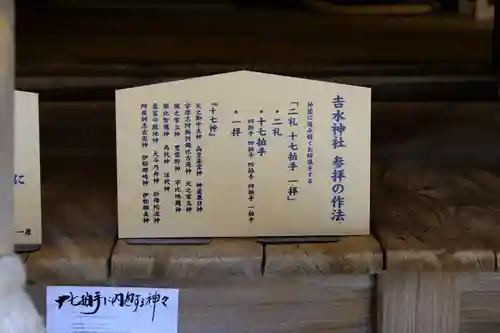 𠮷水神社 参拝の作法
神前に進み軽くお辞儀をする
「二礼 十七拍手 一拝」
・二礼
・十七拍手
四拍手 四拍手 四拍手 四拍手 一拍手
・一拝
『十七神』
天之御中主神 高皇産霊神 神産巣日神
宇摩志阿斯訶備比古遅神 天之常立神
国之常立神 豊雲野神 宇比地邇神
須比智邇神 角杙神 活杙神
意富斗能地神 大斗乃弁神 於母陀流神
阿夜訶志古泥神 伊邪那岐神 伊邪那美神
に
十七拍手に内包する神々